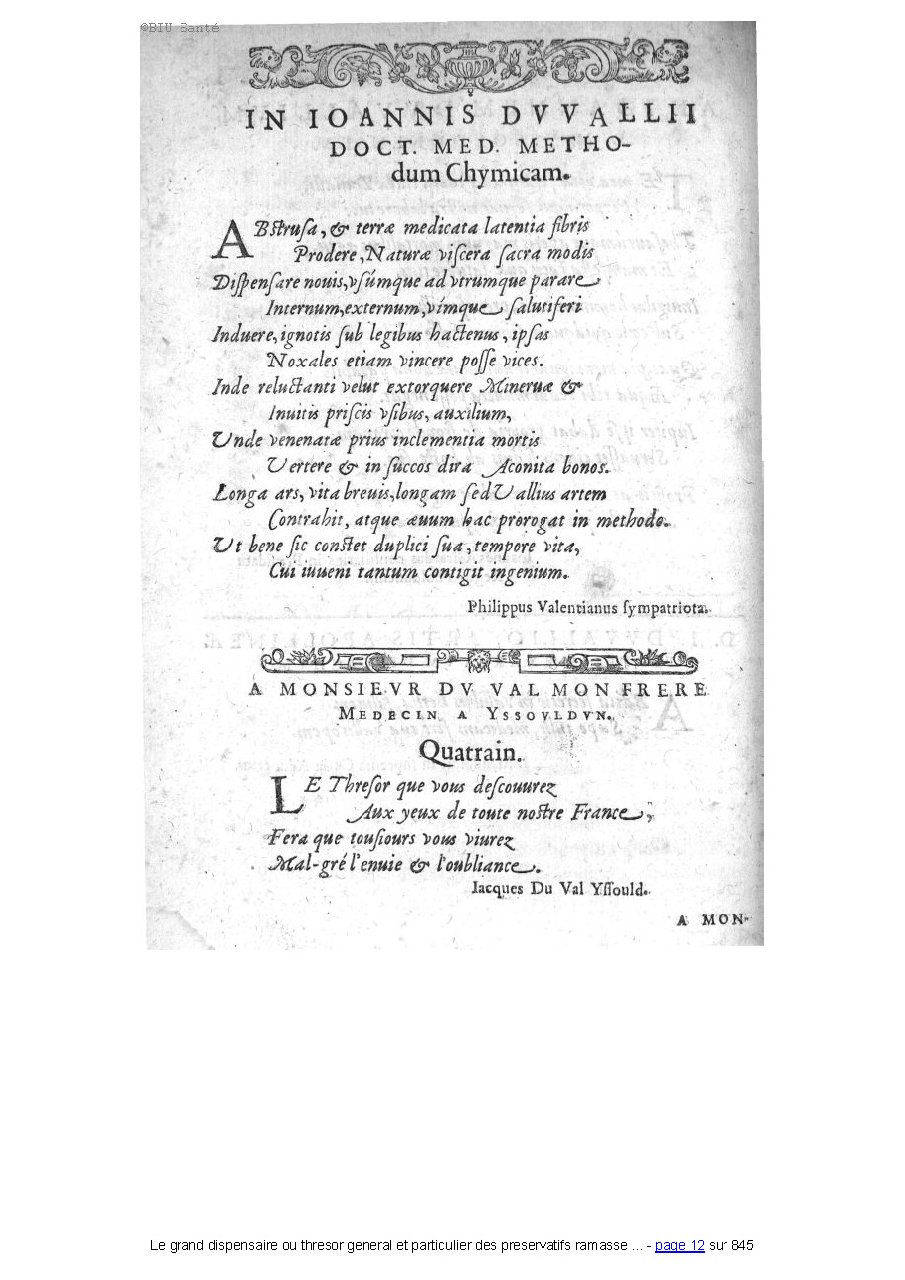 ©BIU Santé
IN IOANNIS DVVALLII
DOCT. MED. METHO-
dum Chymicam.
ABstrusa, & terræ medicata latentia fibris
Prodere, Naturæ viscera sacra modis
Dispensare nouis, vsúmque ad vtrumque parare
Internum, externum, vímque salutiferi
Induere, ignotis sub legibus hactenus, ipsas
Noxales etiam vincere posse vices.
Inde reluctanti velut extorquere Mineruæ &
Inuitis priscis vsibus, auxilium,
Unde venenatæ prius inclementia mortis
Vertere & in succos dira Aconita bonos.
Longa ars, vita breuis, longam sed Vallius artem
Contrahit, atque æuum hac prorogat in methodo.
Ut bene sic constet duplici sua, tempore vita,
Cui iuueni tantum contigit ingenium.
Philippus Valentianus sympatriota.
A MONSIEVR DV VAL MON FRERE
MEDECIN A YSSOVLDVN.
Quatrain.
LE Thresor que vous descouurez
Aux yeux de toute nostre France,
Fera que tousiours vous viurez
Mal-gré l'enuie & l'oubliance.
Iacques Du Val Yssould.
A MON-
Le grand dispensaire ou thresor general et particulier des preservatifs ramasse ... - page 12 sur 845